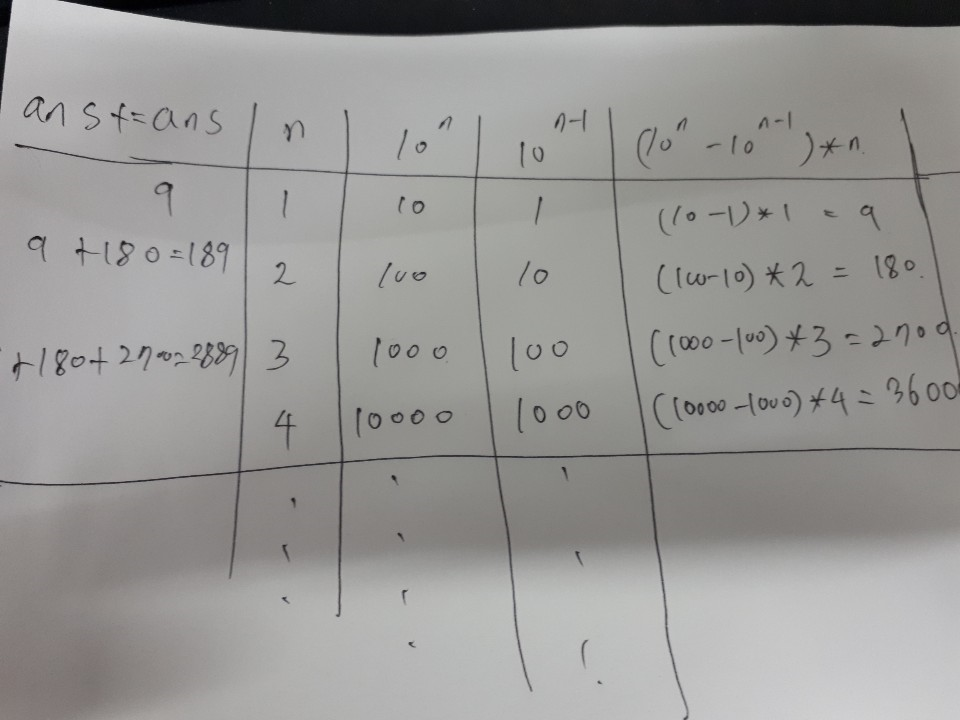 ans += ans | n | 10^n | 10^{n-1} | (10^n - 10^{n-1}) * n.
9 | 1 | 10 | 1 | (10 - 1) * 1 = 9
9 + 180 = 189 | 2 | 100 | 10 | (100 - 10) * 2 = 180.
+ 180 + 2700 = 2889 | 3 | 1000 | 100 | (1000 - 100) * 3 = 2700
4 | 10000 | 1000 | (10000 - 1000) * 4 = 3600